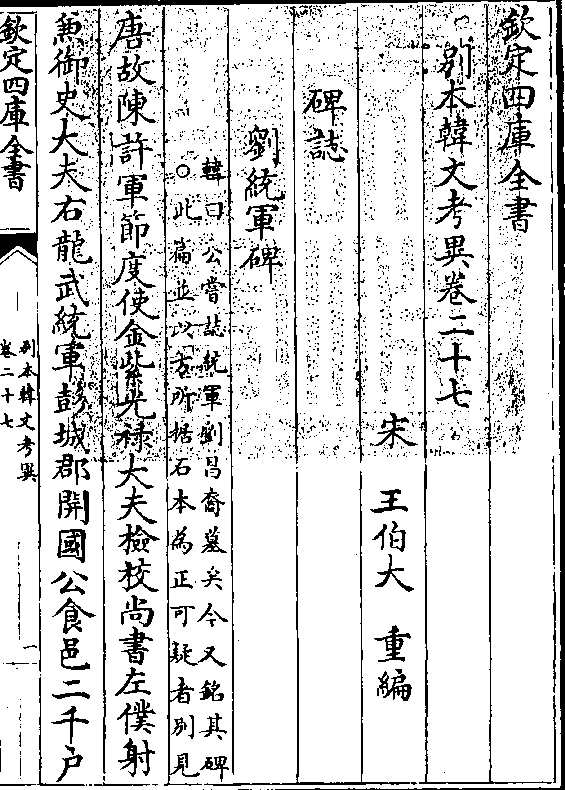 欽定四庫全書
別本韓文考異卷二十七
宋 王伯大 重編
碑誌
劉統軍碑
韓曰公嘗誌統軍劉昌裔墓矣今又銘其碑
○此篇並以方所据石本為正可疑者別見
唐故陳許軍節度使金紫光祿大夫檢校尚書左僕射
兼御史大夫右龍武統軍彭城郡開國公食邑二千户
欽定四庫全書
別本韓文考異
卷二十七
一